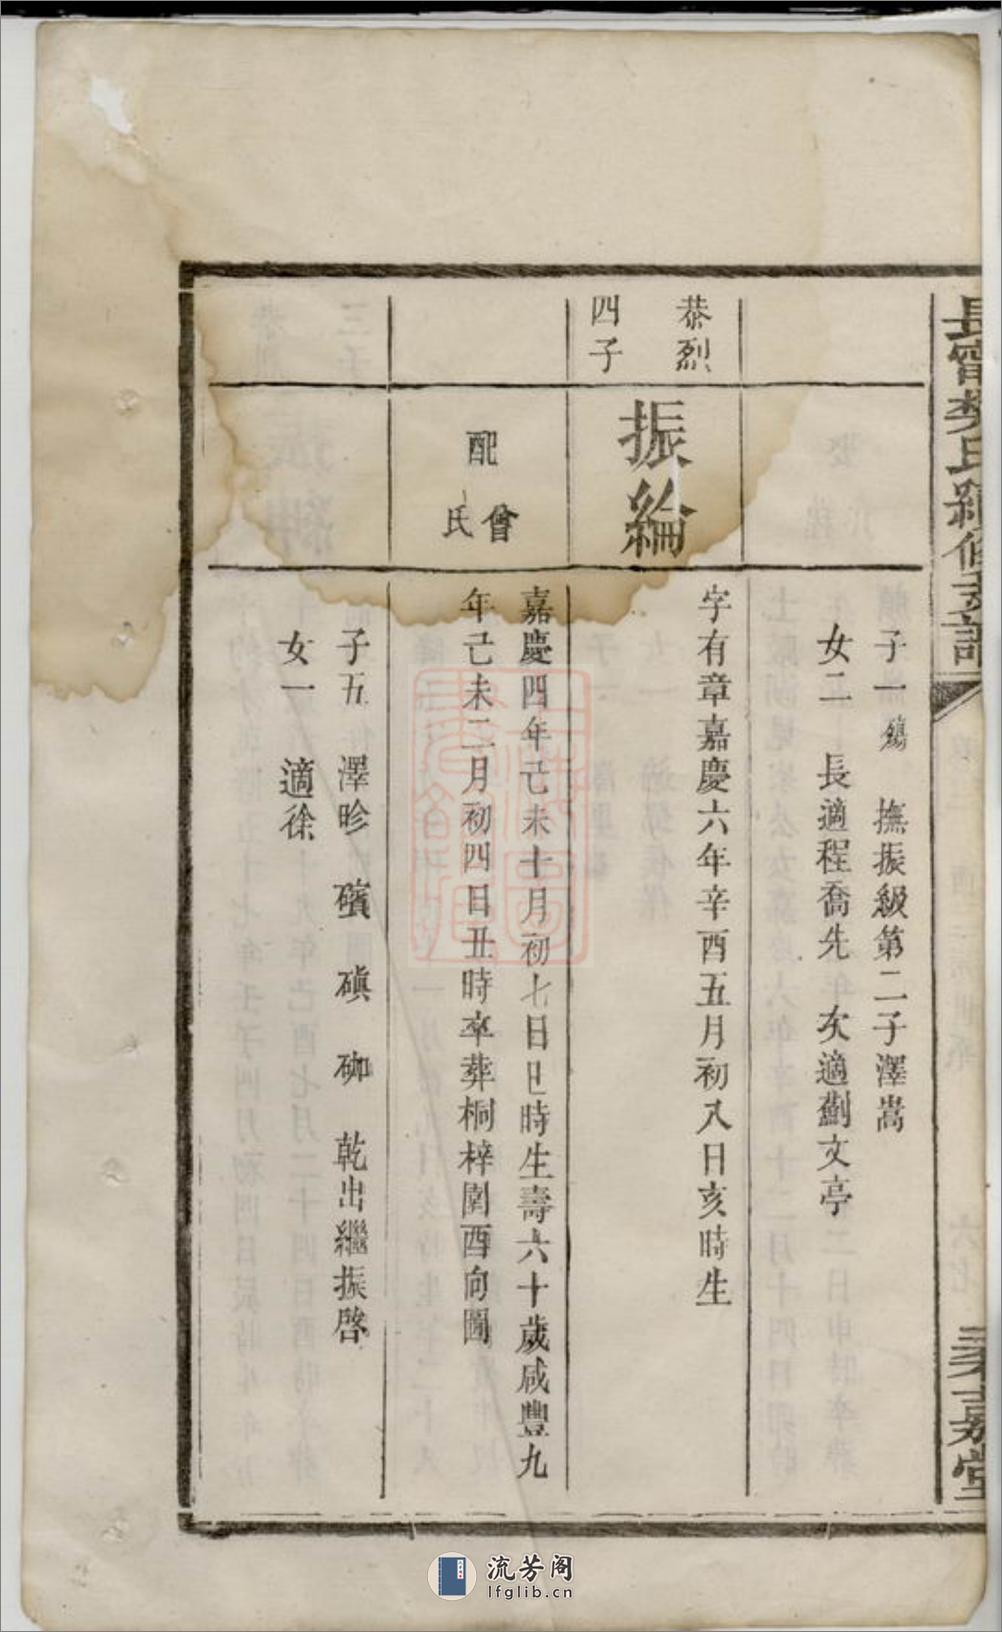 子一 鵷 撫振級第二子澤嵩
女二 長適程喬先 次適劉文亭
恭烈
四子
振綸
字有章嘉慶六年辛酉五月初八日亥時生
配
曾氏
嘉慶四年己未十月初七日巳時生壽六十歲咸豐九
年己未二月初四日丑時卒葬桐梓園酉向圖
子五 澤昣 礦 磌 𥑻 乾出繼振啓
女一 適徐
六七
流芳阁
lfglib.cn